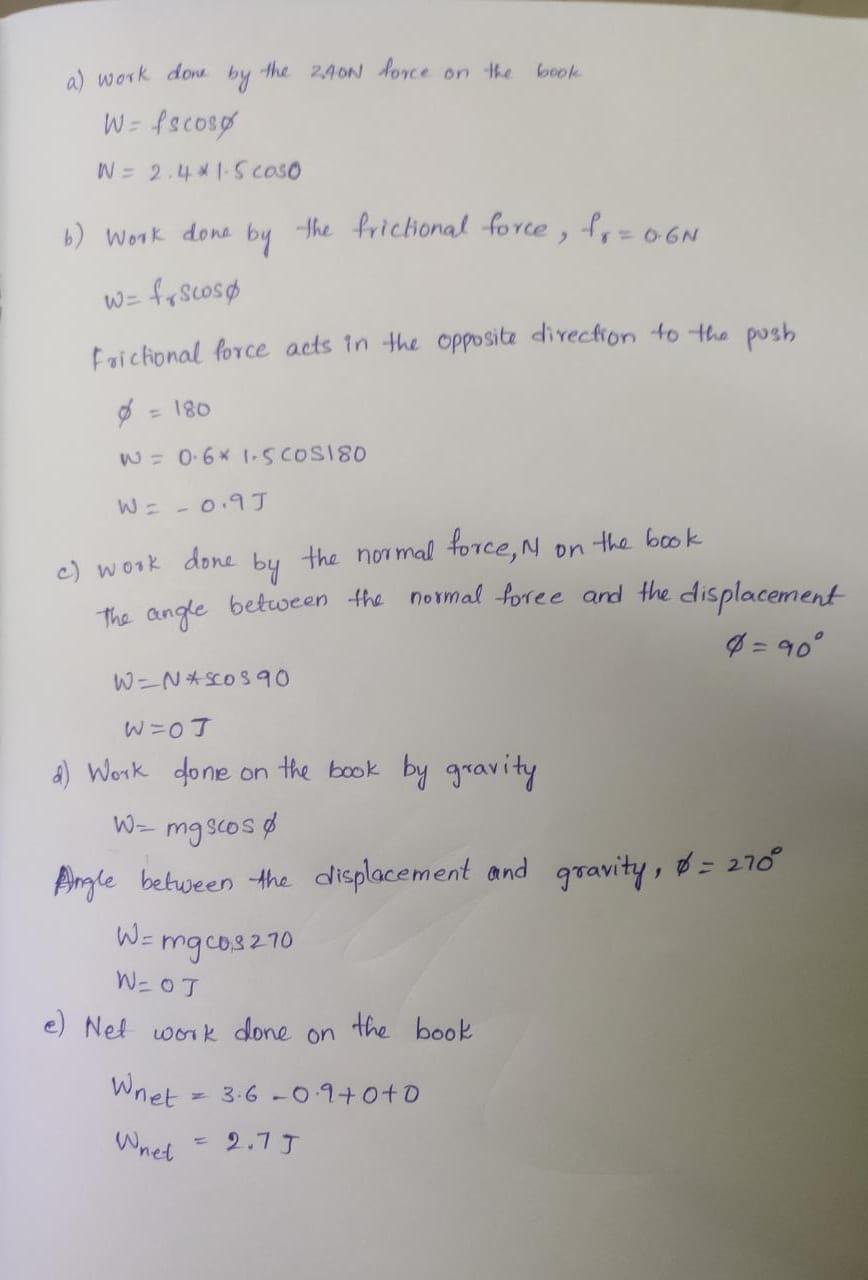 a) work done by the 2.40N force on the book
W = fscosø
W = 2.4 * 1.5 cos0
b) Work done by the frictional force, fr = 0.6N
W = frscosø
Frictional force acts in the opposite direction to the push
ø = 180
W = 0.6 * 1.5 COS180
W = -0.9J
c) work done by the normal force, N on the book
The angle between the normal force and the displacement
ø = 90°
W = N * scos90
W = 0J
d) Work done on the book by gravity
W = mgscosø
Angle between the displacement and gravity, ø = 270°
W = mgcos270
W = 0J
e) Net work done on the book
Wnet = 3.6 - 0.9 + 0 + 0
Wnet = 2.7 J